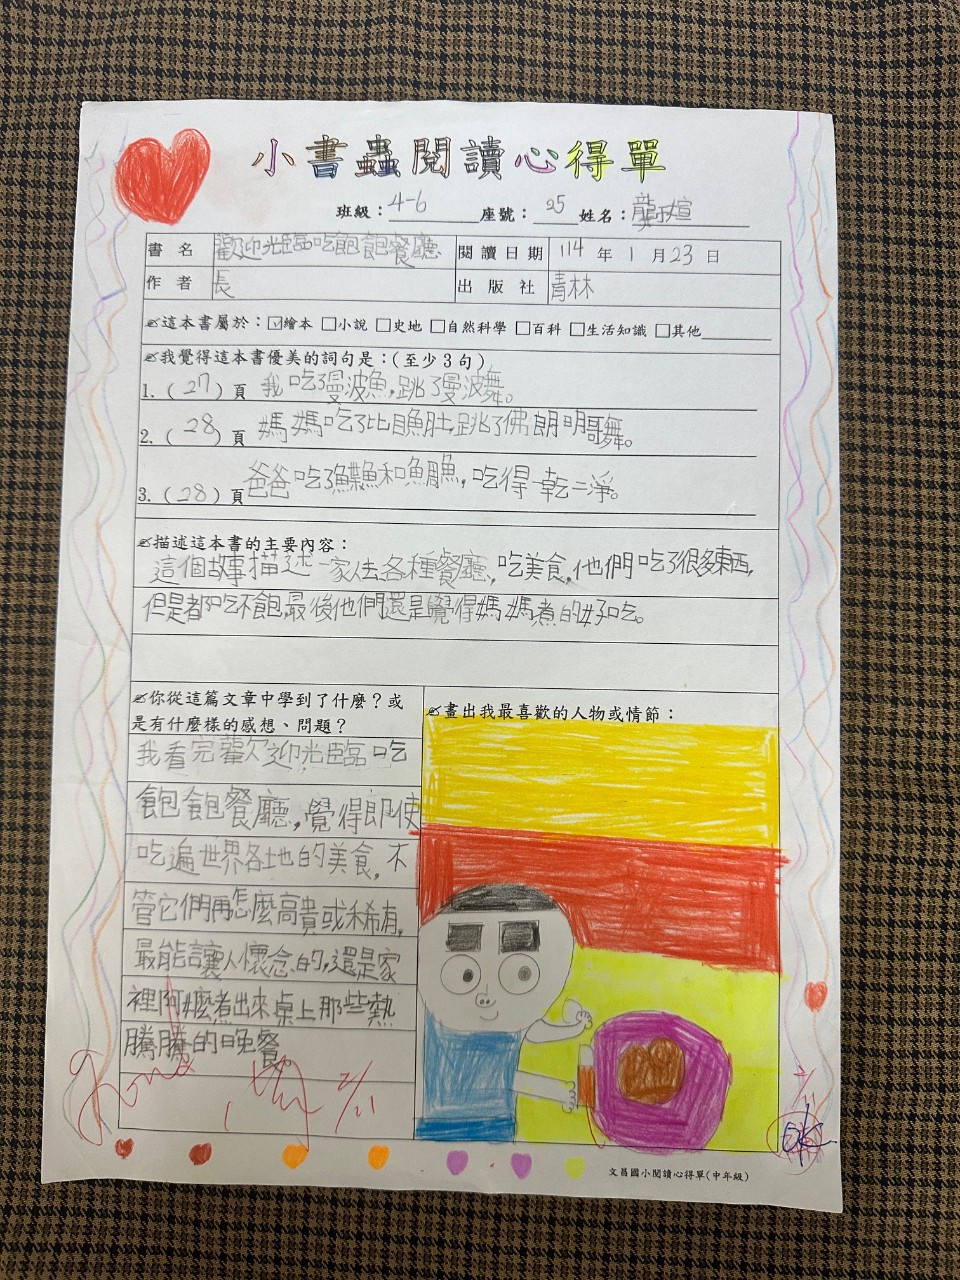 小書蟲閱讀心得單
班級：4-6 座號：25 姓名：龔
書名 歡迎光臨吃飽飽餐廳 閱讀日期 114年1月23日
作者 長 出版社 青林
這本書屬於：☑繪本 □小說 □史地 □自然科學 □百科 □生活知識 □其他
我覺得這本書優美的詞句是：(至少3句)
1.(27)頁 我吃了曼波魚,跳了曼波舞。
2.(28)頁 媽媽吃了比目魚肚,跳了佛朗明哥舞。
3.(28)頁 爸爸吃了和,吃得一乾二淨。
描述這本書的主要內容：
這個故事描述一家人去各種餐廳,吃美食,他們吃了很多東西,
但是都吃不飽,最後他們還是覺得媽媽煮的好吃。
你從這篇文章中學到了什麼？或
是有什麼樣的感想、問題？
我看完歡迎光臨吃
飽飽餐廳,覺得即使
吃遍世界各地的美食,不
管它們再怎麼高貴或稀有,
最能讓人懷念的,還是家
裡阿煮出來桌上那些熱
騰騰的晚餐。
畫出我最喜歡的人物或情節：
2/11
2/11
文昌國小閱讀心得單(中年級)